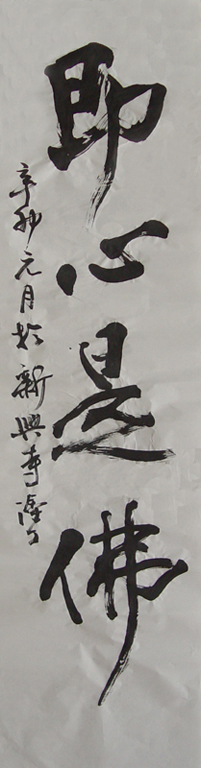 即心是佛
辛卯元月於新興寺